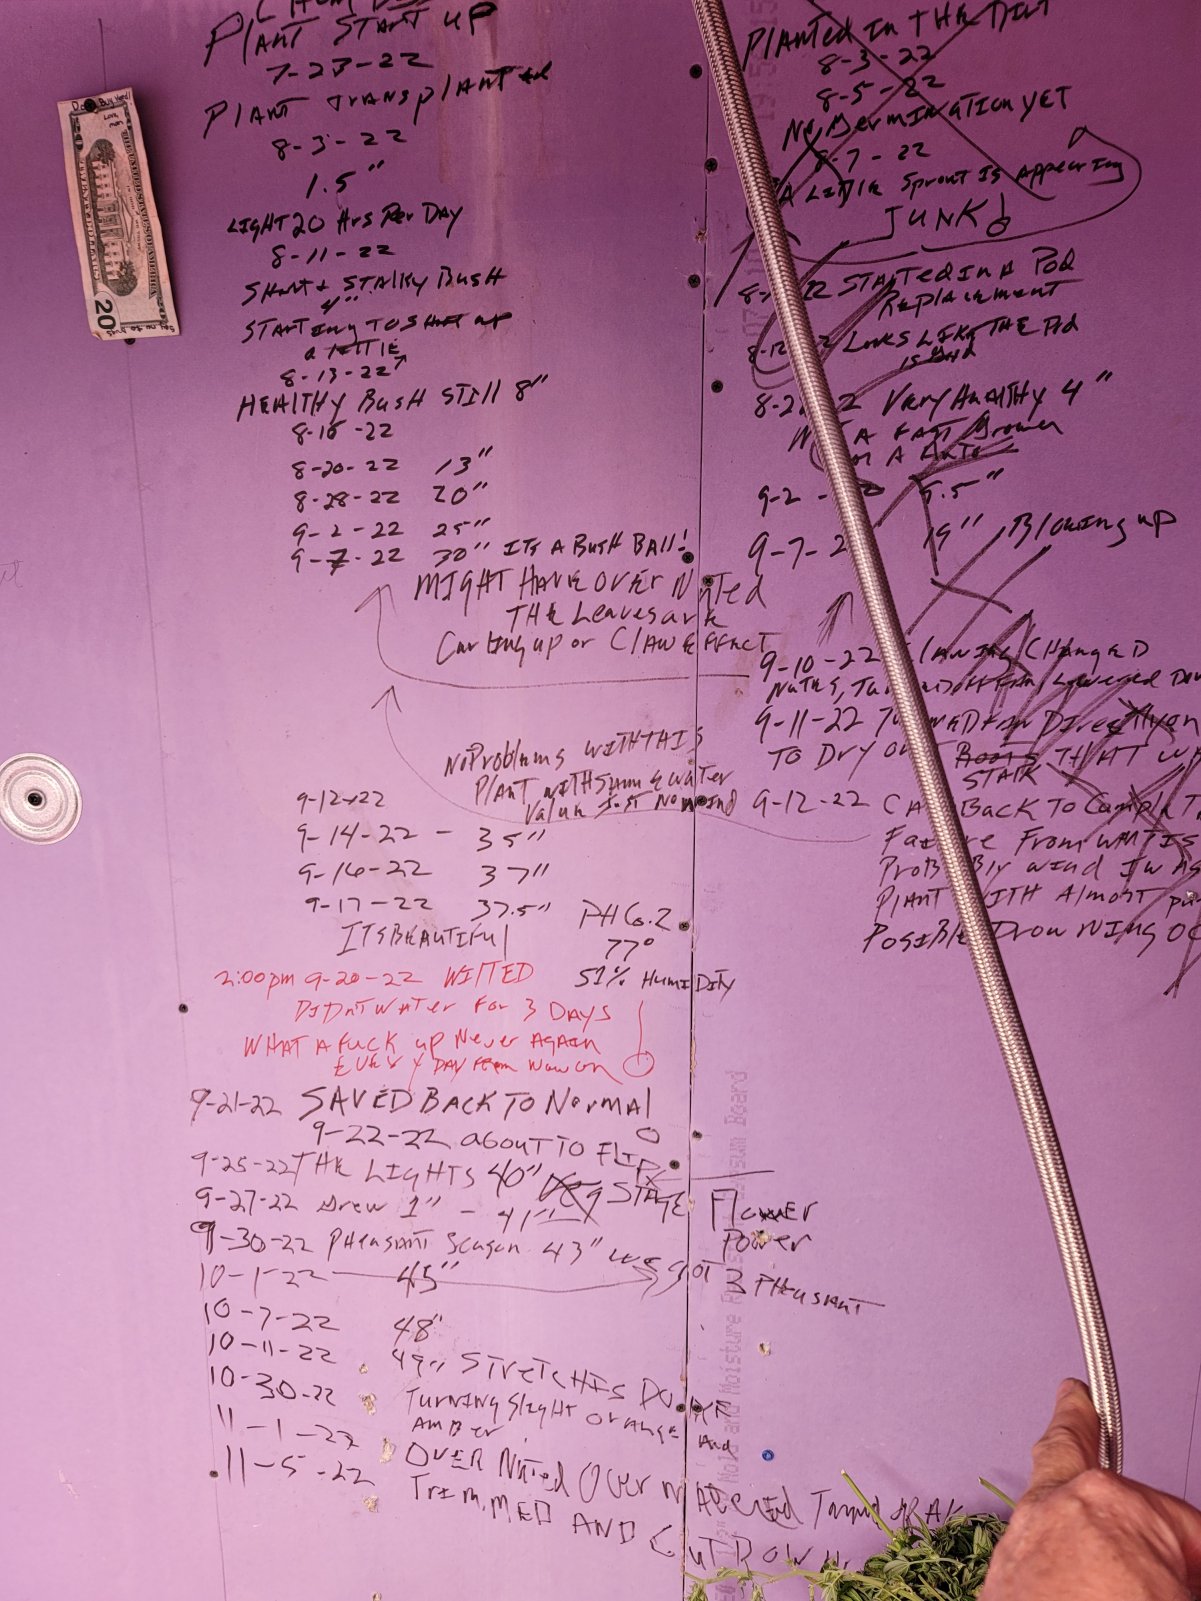 PLANT START UP
7-23-22
PLANT TRANSPLANTED
8-3-22
1.5"
LIGHT 20 Hrs Per DAY
8-11-22
SHORT + STALKY BUSH
4"
STARTING TO SHOOT UP
A LITTLE
8-13-22
HEALTHY BUSH STILL 8"
8-16-22
8-20-22 13"
8-28-22 20"
9-2-22 25"
9-7-22 30" ITS A BUSH BALL!
MIGHT HAVE OVER Nuted
THE Leaves are
Curling up or CLAW EFFECT
No Problems WITH THIS
PLANT WITH SAME WATER
Value JUST NO WIND
9-12-22
9-14-22 - 35"
9-16-22 37"
9-17-22 37.5"
ITS BEAUTIFUL
PH 6.2
77°
51% HUMIDITY
2:00pm 9-20-22 WILTED
DIDNT WATER For 3 DAYS
WHAT A FUCK UP Never AGAIN
EVERY DAY From Now on
9-21-22 SAVED BACK TO Normal
9-22-22 ABOUT TO FLIP
9-25-22 THE LIGHTS 40" Veg STAGE FLOWER
Power
9-27-22 Grew 1" - 41"
9-30-22 PHEASANT Season 43" WE GOT 3 PHEASANT
10-1-22 45"
10-7-22 48"
10-11-22 49" STRETCH IS DONE
10-30-22 TURNING SLIGHT Orange And
AMBER
11-1-22 OVER Nuted Over WATERED
11-5-22 TRIMMED AND CUT DOWN
PLANTED IN THE DIRT
8-3-22
8-5-22
No Germination YET
8-7-22
A LITTLE Sprout IS Appearing
JUNK!
STARTED IN A Pod
Replacement
Looks LIKE THE Pod
is Good
Very HEALTHY 4"
A FAST Grower
A Auto
9-2- 9.5"
9-7-2 19" Blowing up
9-10-22 CHANGED
Lowered
9-11-22 FAN Directly on
TO Dry Roots THAT
STALK
9-12-22 BACK TO
From WHAT IS
Wind
PLANT WITH ALMOST
POSSIBLE Drowning
Mold and Moisture
Board
20